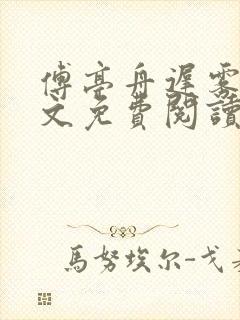 傅亭舟遲雾
文免費閱讀
馬努埃尔-戈